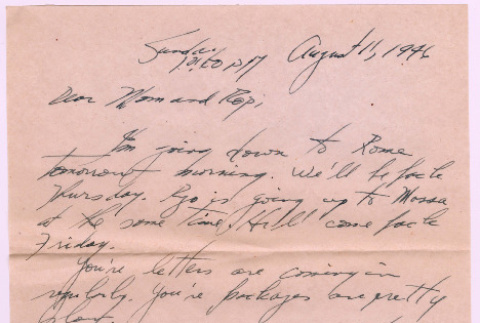 Sunday August 11, 1946
10:60 PM
Dear Mom and Pop,
I'm going down to Rome
tomorrow morning. We'll be back
Thursday. is going up to Massa
at the same time. He'll come back
Friday.
You're letters are coming in
regularly. You're packages are pretty